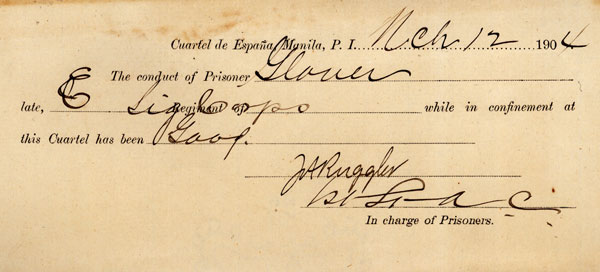 Cuartel de España, Manila, P. I. Mch 12 1904
The conduct of Prisoner Glover
late, E Sig Corps Regiment of while in confinement at
this Cuartel has been Good.
JARuggles
1st Lt A C
In charge of Prisoners.